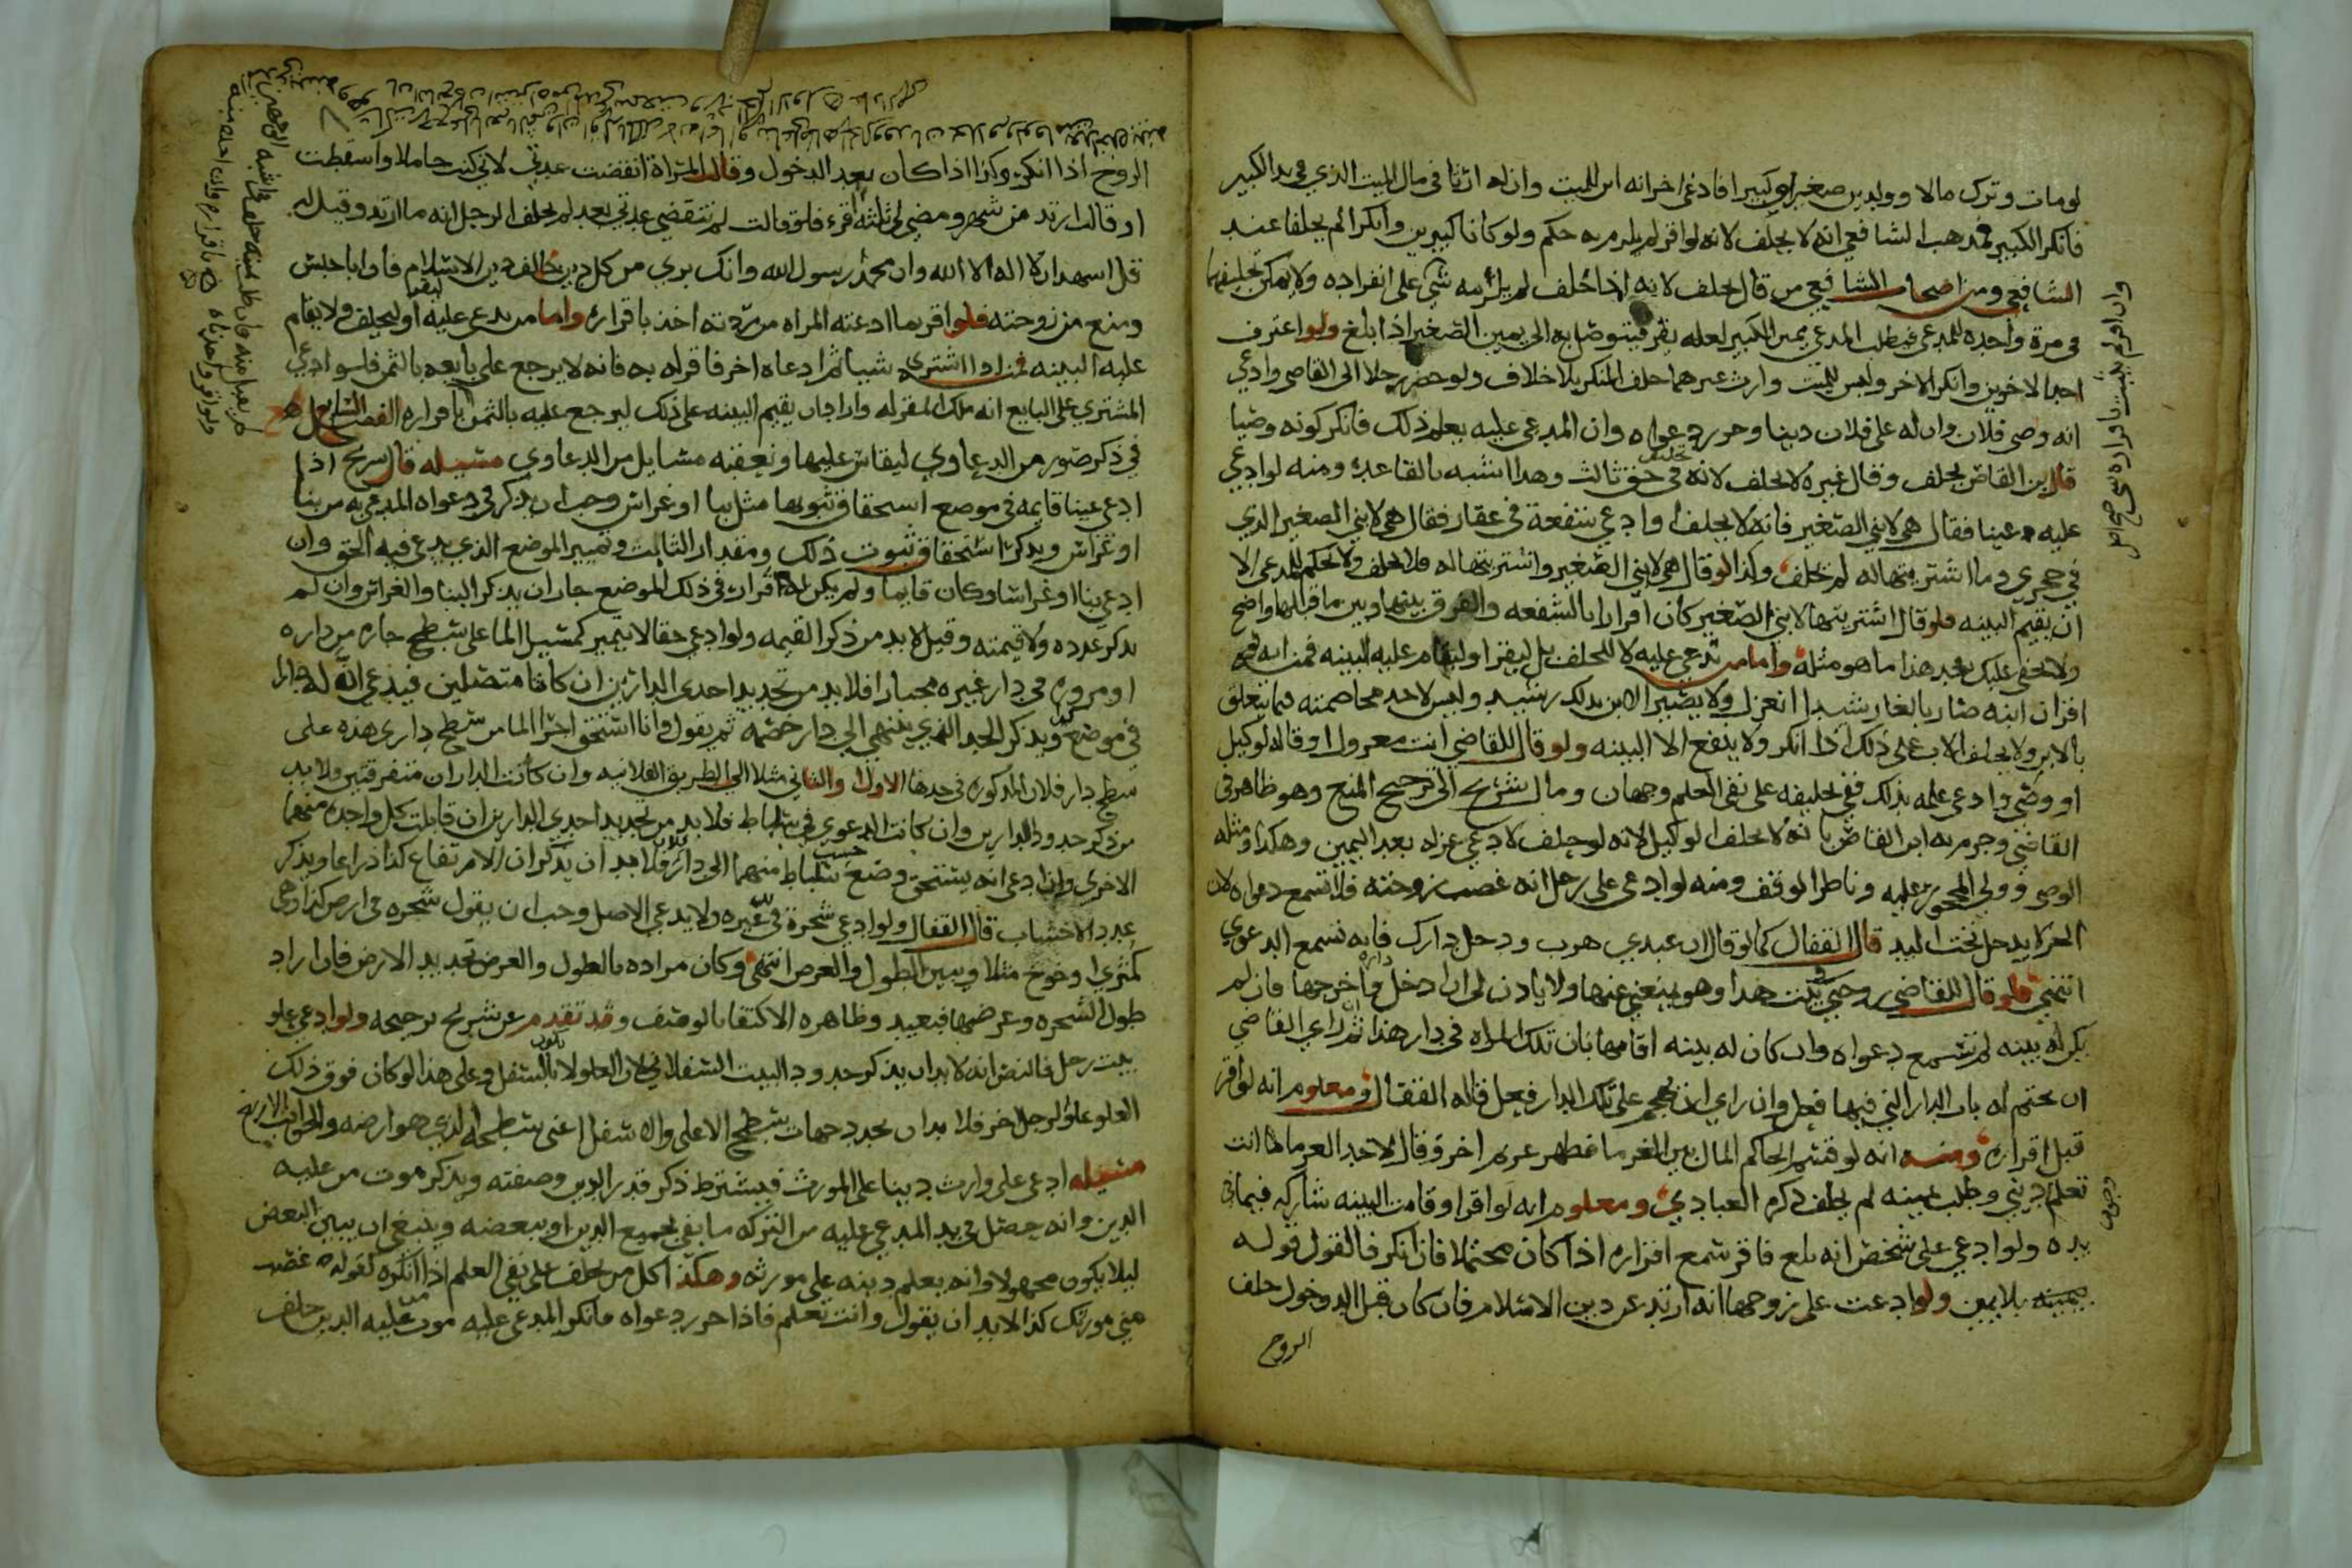 لو مات وترك مالا وولدين صغيرا وكبيرا فادعى اخر انه ابن للميت وان له ارثا في مال الميت الذي في يد الكبير
فانكر الكبير فمذهب الشافعي انه لا يحلف لانه لو اقر لم يلزمه حكم ولو كانا كبيرين وانكرا لم يحلفا عند
الشافعي ومن اصحاب الشافعي من قال يحلف لانه اذا حلف لم يلزمه شي على انفراده ولا يمكن تحليفهما
في مرة واحدة للمدعي فيطلب المدعي يمين الكبير لعله يقر فيتوصل به الى يمين الصغير اذا بلغ ولو اعترف
احد الاخوين وانكر الاخر وليس للميت وارث غيرهما حلف المنكر بلا خلاف ولو حضر رجلا الى القاضي وادعى
انه وصي فلان وان له على فلان دينا وحرر دعواه وان المدعى عليه يعلم ذلك فانكر كونه وصيا
قال ابن القاص يحلف وقال غيره لا يحلف لانه في حق ثالث وهذا اشبه بالقاعدة ومنه لو ادعى
عليه عينا فقال هي لابني الصغير فانه لا يحلف او ادعى شفعة في عقار فقال هي لابني الصغير الذي
في حجري وما اشتريتها له لم يحلف وكذا لو قال هي لابني الصغير واشتريتها له فلا يحلف ولا يحكم للمدعي الا
ان يقيم البينه فلو قال اشتريتها لابني الصغير كان اقرارا بالشفعه والفرق بينهما وبين ما قبلها واضح
ولا يخفى عليك بعد هذا ما هو مثله واما من تدعي عليه لا للحلف بل ليقر او لتقام عليه البينه فمن ابنه
اقر ان ابنه صار بالغا رشيدا انعزل ولا يصير الابن بذلك رشيد وليس لاحد مخاصمته فيما يتعلق
بالابن ولا يحلف الاب على ذلك اذا انكر ولا ينفع الا البينه ولو قال للقاضي انت معزول او قاله لوكيل
او وصي وادعى علمه بذلك ففي تحليفه على نفي العلم وجهان ومال شريح الى ترجيح المنع وهو ظاهر في
القاضي وجزم به ابن القاص بانه لا يحلف الوكيل لانه لو حلف لادعى عزله بعد اليمين وهكذا ومثله
الوصي وولي المحجور عليه وناظر الوقف ومنه لو ادعى على رجل انه غصب زوجته فلا تسمع دعواه لان
الحر لا يدخل تحت اليد قال القفال كما لو قال ان عبدي هرب ودخل دارك فانه تسمع الدعوى
انتهى فلو قال للقاضي زوجتي في بيت هذا وهو يمنعني عنها ولا ياذن لي ان ادخل داره واخرجها فان لم
يكن له بينه لم تسمع دعواه وان كان له بينه اقامها بان تلك المراه في دار هذا ثم ان راي القاضي
ان يختم له باب الدار التي فيها فعل وان راي ان يهجم على تلك الدار فعل قاله القفال ومعلوم انه لو اقر
قبل اقراره ومنه انه لو قسم الحاكم المال بين الغرما فظهر غريم اخر وقال لاحد الغرما انت
تعلم ديني وطلب يمينه لم يحلف ذكره العبادي ومعلوم انه لو اقر او قامت البينه شاركه فيما في
يده ولو ادعي على شخص انه بلغ فاقر سمع اقراره اذا كان محتملا فان انكر فالقول قوله
بيمينه بلا يمين ولو ادعت على زوجها انه ارتد عن دين الاسلام فان كان قبل الدخول حلف
الزوج
وان اقر لم يثبت باقراره شي صح اصل
الزوج اذا انكر وكذا اذا كان بعد الدخول وقالت المراة انقضت عدتي لاني كنت حاملا واسقطت
او قالت ارتد من شهر ومضى لي ثلثة اقرء فلو قالت لم تنقضي عدتي بعد لم يحلف الرجل انه ما ارتد وقيل له
قل اشهد ان لا اله الا الله وان محمد رسول الله وانك بري من كل دين خالف دين الاسلام فان ابا حبس
ومنع من زوجته فلو اقر بما ادعته المراه من ردته اخذ باقراره واما من يدعى عليه ليقر او ليحلف ولا يقام
عليه البينه فمن اذا اشترى شيا ثم ادعاه اخر فاقر له به فانه لا يرجع على بايعه بالثمن فلو ادعى
المشتري على البايع انه ملك المقر له واراد ان يقيم البينه على ذلك ليرجع عليه بالثمن باقراره الفصل السابع
في ذكر صور من الدعاوي ليقاس عليها ونعقبه مسايل من الدعاوي مسيله قال شريح اذا
ادعى عينا قايمه في موضع استحقاق ثبوتها مثل بنا او غراس وجب ان يذكر في دعواه المدعي به من بنا
او غراس ويذكر استحقاق ثبوت ذلك ومقدار الثابت وتمييز الموضع الذي يدعي فيه الحق وان
ادعى بنا او غراسا وكان قايما ولم يكن له اقرار في ذلك الموضع جاز ان يذكر البنا والغراس وان لم
يذكر عدده ولا قيمته وقيل لا بد من ذكر القيمه ولو ادعى حقا لا يتميز كمسيل الما على سطح جاره من داره
او مروره في دار غيره مجتازا فلا بد من تحديد احدى الدارين ان كانتا متصلتين فيدعي ان له دارا
في موضع كذا ويذكر الحد الذي ينتهي الى دار خصمه ثم يقول وانا استحق اجرا الما من سطح داري هذه على
سطح دار فلان المذكوره في حدها الاول والثاني مثلا الى الطريق الفلانيه وان كانت الداران متفرقتين ولا بد
من ذكر حدود الدارين وان كانت الدعوى في ساباط فلا بد من تحديد احدى الدارين ان قابلت كل واحدة منهما
الاخرى وان ادعى انه يستحق وضع خشب ساباط منهما الى دار فلان فلا بد ان يذكر ان الارتفاع كذا ذراعا ويذكر
عدد الاخشاب قال القفال ولو ادعى شجرة في يد غيره ولا يدعي الاصل وجب ان يقول شجره في ارض كذا وهي
كمثرى او خوخ مثلا ويبين الطول والعرض انتهى وكان مراده بالطول والعرض تحديد الارض فان اراد
طول الشجره وعرضها فبعيد وظاهره الاكتفا بالوصف وقد تقدم عن شريح ترجيحه ولو ادعى علو
بيت رجل فالنص انه لا بد ان يذكر حدود البيت السفلاني لان العلو لا يكون الا بالسفل وعلى هذا لو كان فوق ذلك
العلو علو لرجل اخر فلا بد ان يحدد جهات سطح الاعلى والاسفل اعني سطحه الذي هو ارضه والجوانب الاربع
مسيله ادعى على وارث دينا على المورث فيشترط ذكر قدر الدين وصفته ويذكر موت من عليه
الدين وانه حصل في يد المدعى عليه من التركه ما يفي بجميع الدين او ببعضه وينبغي ان يبين البعض
ليلا يكون مجهولا وانه يعلم دينه على مورثه وهكذا كل من يحلف على نفي العلم اذا انكره كقوله غصب
مني مورثك كذا لا بد ان يقول وانت تعلم فاذا حرر دعواه فانكر المدعى عليه موت من عليه الدين حلف